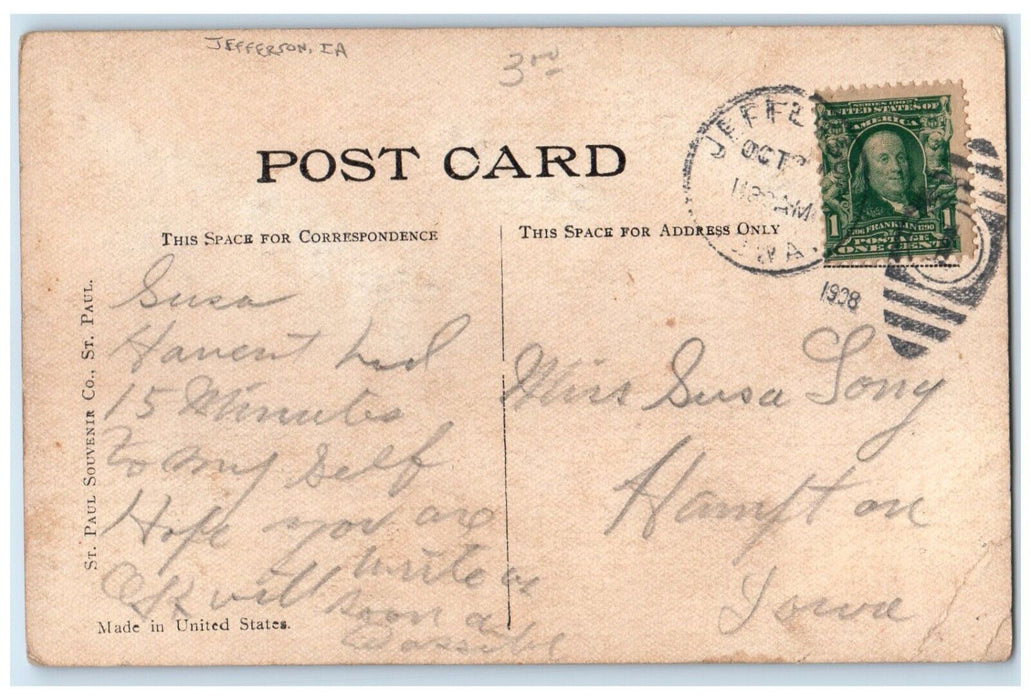 JEFFERSON, IA
3rd
POST CARD
THIS SPACE FOR CORRESPONDENCE
THIS SPACE FOR ADDRESS ONLY
JEFFE
OCT
AM
WA
1908
SERIES 1902
UNITED STATES OF
AMERICA
1 1
1706 FRANKLIN 1790
POSTAGE
ONE CENT
ST. PAUL SOUVENIR CO., ST. PAUL.
Susa
Havent had
15 Minutes
to my Self
Hope you are
OK will write as
soon as
Possible
Made in United States.
Miss Susa Long
Hampton
Iowa